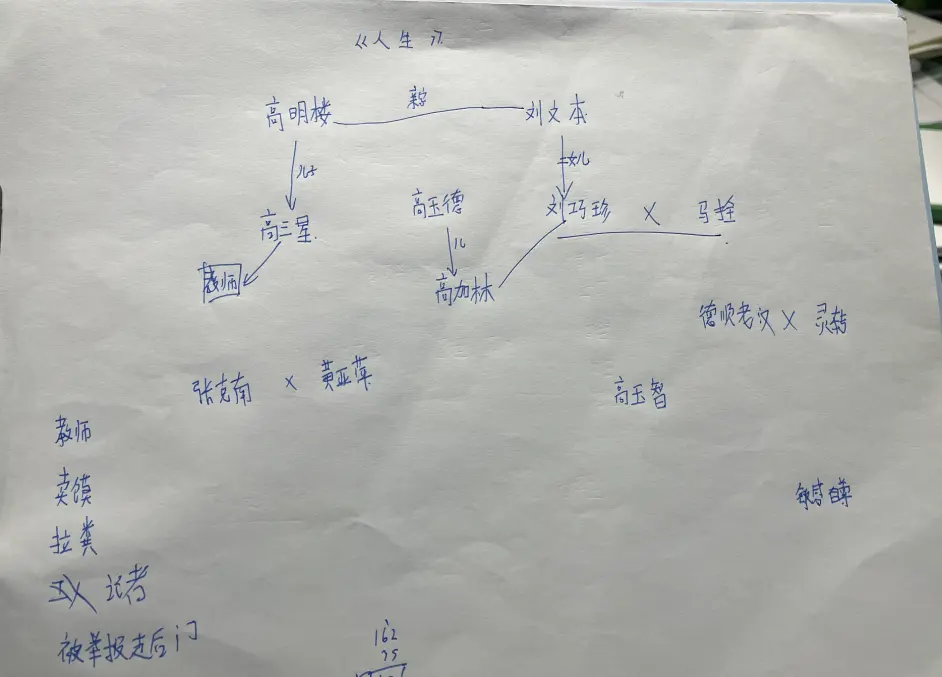 《人生》
亲家
高明楼 刘文本
儿子 女儿
高三星 高玉德 刘巧珍 X 马拴
儿
教师 高加林
德顺老汉 X 灵转
张克南 X 黄亚萍 高玉智
教师
卖馍
敏感自尊
拉粪
记者
被举报走后门
162
75